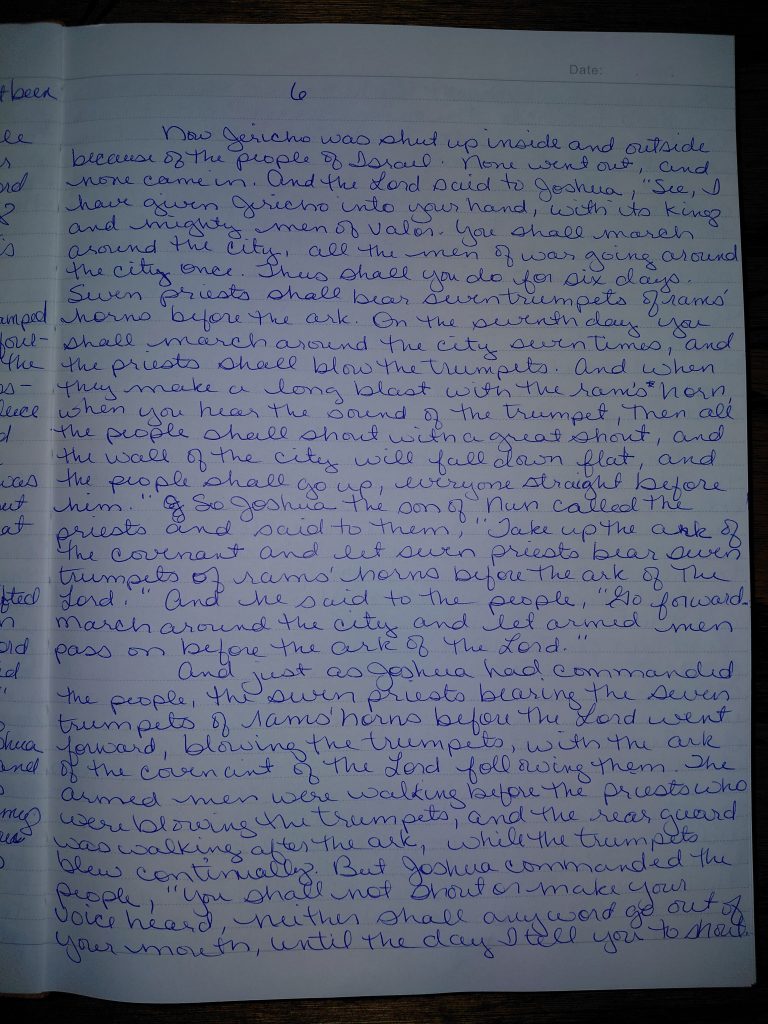 Date:
6
Now Jericho was shut up inside and outside
because of the people of Israel. None went out, and
none came in. And the Lord said to Joshua, "See, I
have given Jericho into your hand, with its king
and mighty men of valor. You shall march
around the city, all the men of war going around
the city once. Thus shall you do for six days.
Seven priests shall bear seven trumpets of rams'
horns before the ark. On the seventh day you
shall march around the city seven times, and
the priests shall blow the trumpets. And when
they make a long blast with the ram's horn,
when you hear the sound of the trumpet, then all
the people shall shout with a great shout, and
the wall of the city will fall down flat, and
the people shall go up, everyone straight before
him." So Joshua the son of Nun called the
priests and said to them, "Take up the ark of
the covenant and let seven priests bear seven
trumpets of rams' horns before the ark of the
Lord." And he said to the people, "Go forward.
March around the city and let armed men
pass on before the ark of the Lord."
And just as Joshua had commanded
the people, the seven priests bearing the seven
trumpets of rams' horns before the Lord went
forward, blowing the trumpets, with the ark
of the covenant of the Lord following them. The
armed men were walking before the priests who
were blowing the trumpets, and the rear guard
was walking after the ark, while the trumpets
blew continually. But Joshua commanded the
people, "You shall not shout or make your
voice heard, neither shall any word go out of
your mouth, until the day I tell you to shout.